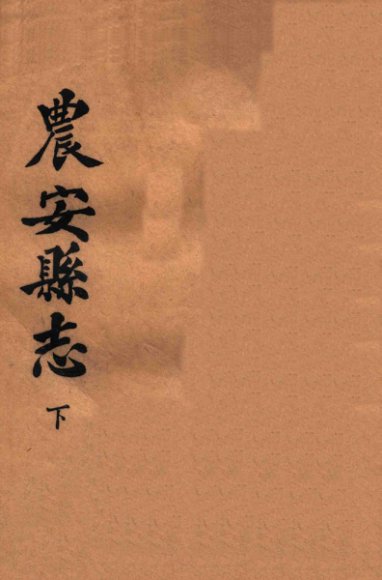 農安縣志
下